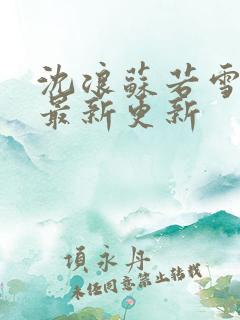 沈浪蘇若雪
最新更新
項永丹
未經同意禁止轉載